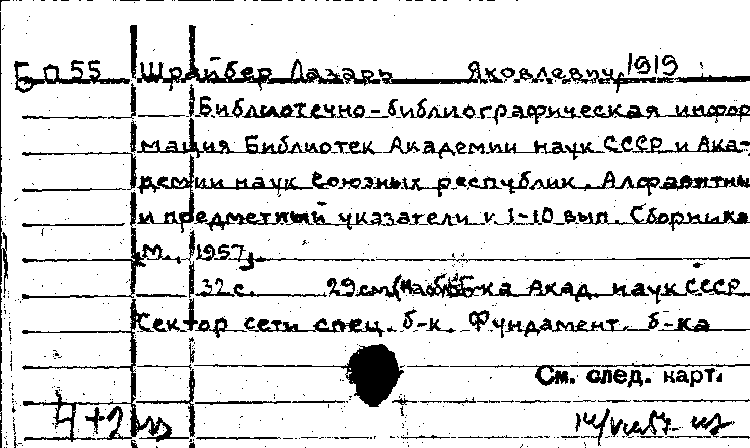 Бп55 Шрайбер Лазарь Яковлевич, 1919
Библиотечно-библиографическая инфор
мация Библиотек Академии наук СССР и Ака-
демии наук союзных республик. Алфавитны
и предметный указатели к 1-10 вып. Сборника
[М., 1957].
32 с. 29 см б-ка Акад. наук СССР
Сектор сети спец. б-к. Фундамент. б-ка
См. след. карт.
4+2